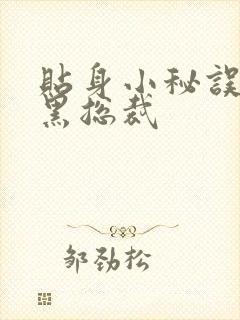 贴身小秘误
黑总裁
邹劲松